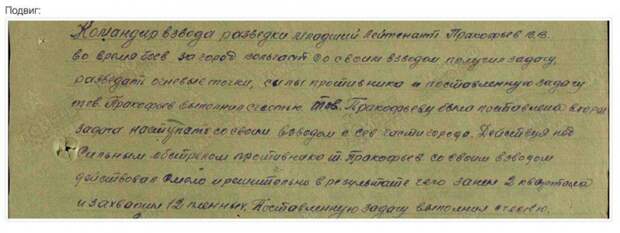 Подвиг:
Командир взвода разведки младший лейтенант Пракофьев
во время боев за город со своим взводом получил задачу,
разведать огневые точки, силы противника и поставленную задачу
тов. Пракофьев выполнил с честью. Тов. Пракофьеву была поставлена вторая
задача наступать со своим взводом с сев части города. Действуя под
сильным обстрелом противника т. Пракофьев со своим взводом
действовал смело и решительно в результате чего занял 2 квартала
и захватил 12 пленных. Поставленную задачу выполнил с честью.